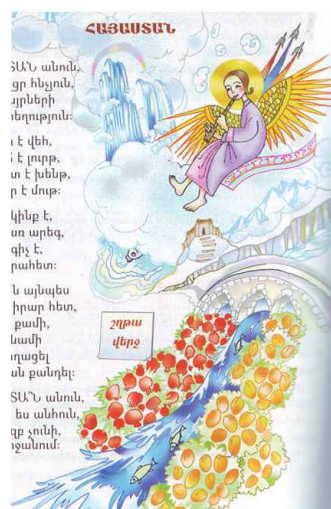 ՀԱՅԱՍՏԱՆ
ՏԱ՜Ն անուն,
ցր հնչյուն,
յրների
եղություն:
է վեհ,
է լուրթ,
տ է խենթ,
ր է մութ:
կինք է,
առ արեգ,
գիչ է,
րահետ:
ն այնպես
իրար հետ,
քամի,
նամի
ողացել
ան քանդել:
ՏԱ՜Ն անուն,
ես անհուն,
զք չունի,
րջանում:
շղթա
վերջ